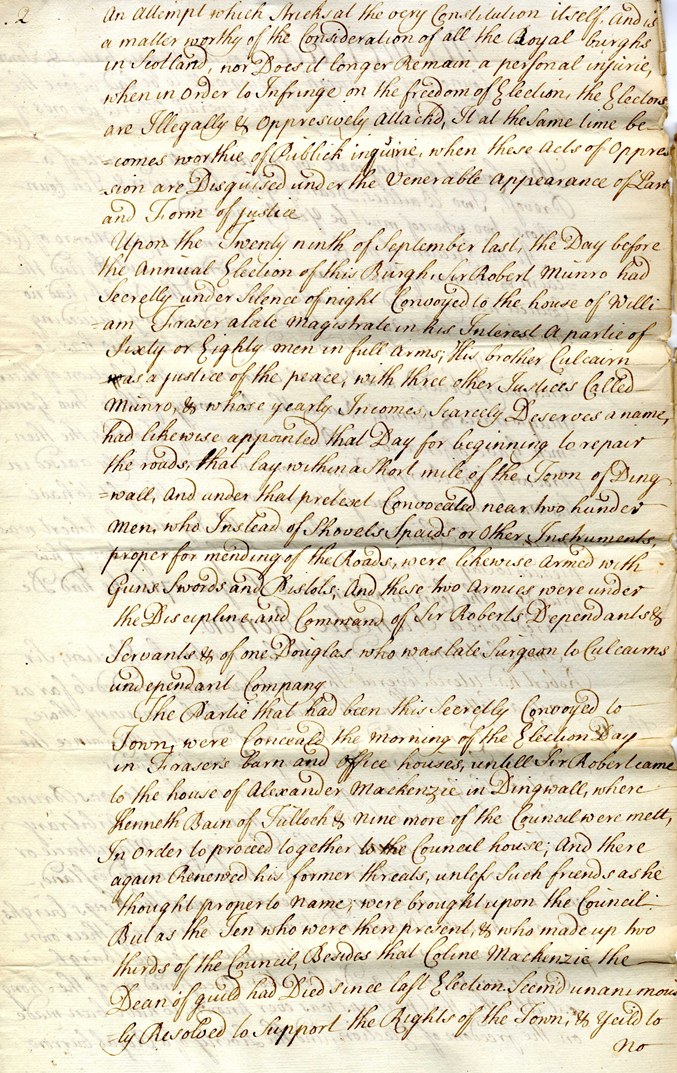 2
An Attempt which Stricks at the very Constitution itself. And is
a matter worthy of the Consideration of all the Royal burghs
in Scotland, nor Does it longer Remain a personal injurie,
when in Order to Infringe on the freedom of Election, the Electors
are Illegally & Oppresively Attackd, It at the same time be-
=comes worthie of Publick inquirie, when these Acts of Oppres
sion are Disguised under the Venerable Appearance of Law
and Form of justice
Upon the Twenty ninth of September last, the Day before
the Annual Election of this Burgh, Sir Robert Munro had
Secretly under Silence of night Convoyed to the house of Willi
=am Fraser a late Magistrate in his Interest A partie of
Sixty or Eighty men in full Arms; His brother Culcairn
as a justice of the peace, with three other Justices Called
Munro, & whose yearly Incomes, Scarcely Deserves a name,
had likewise appointed that Day for beginning to repair
the roads, that lay within a Short mile of the Town of Ding
=wall, And under that pretext Convocated near two hunder
Men, who Instead of Shovels Spaids or Other Instruments
proper for mending of the Roads, were likewise Armed with
Guns Swords and Pistols; And these two Armies were under
the Discipline and Command of Sir Roberts Dependants &
Servants & of one Douglas who was late Surgeon to Culcairns
independant Company
The Partie that had been thus Secretly Convoyed to
Town, were Conceald the morning of the Election Day
in Frasers barn and office houses, untill Sir Robert came
to the house of Alexander Mackenzie in Dingwall, where
Kenneth Bain of Tulloch & nine more of the Council were mett,
In Order to proceed together to the Council house; And there
again Renewed his former threats, unless Such friends as he
thought proper to name, were brought upon the Council:
But as the Ten who were then present, & who made up two
thirds of the Council, Besides that Coline Mackinzie the
Dean of guild had Died since last Election Seemd unanimous
=ly Resolved to Support the Rights of the Town, & Yeild to
no